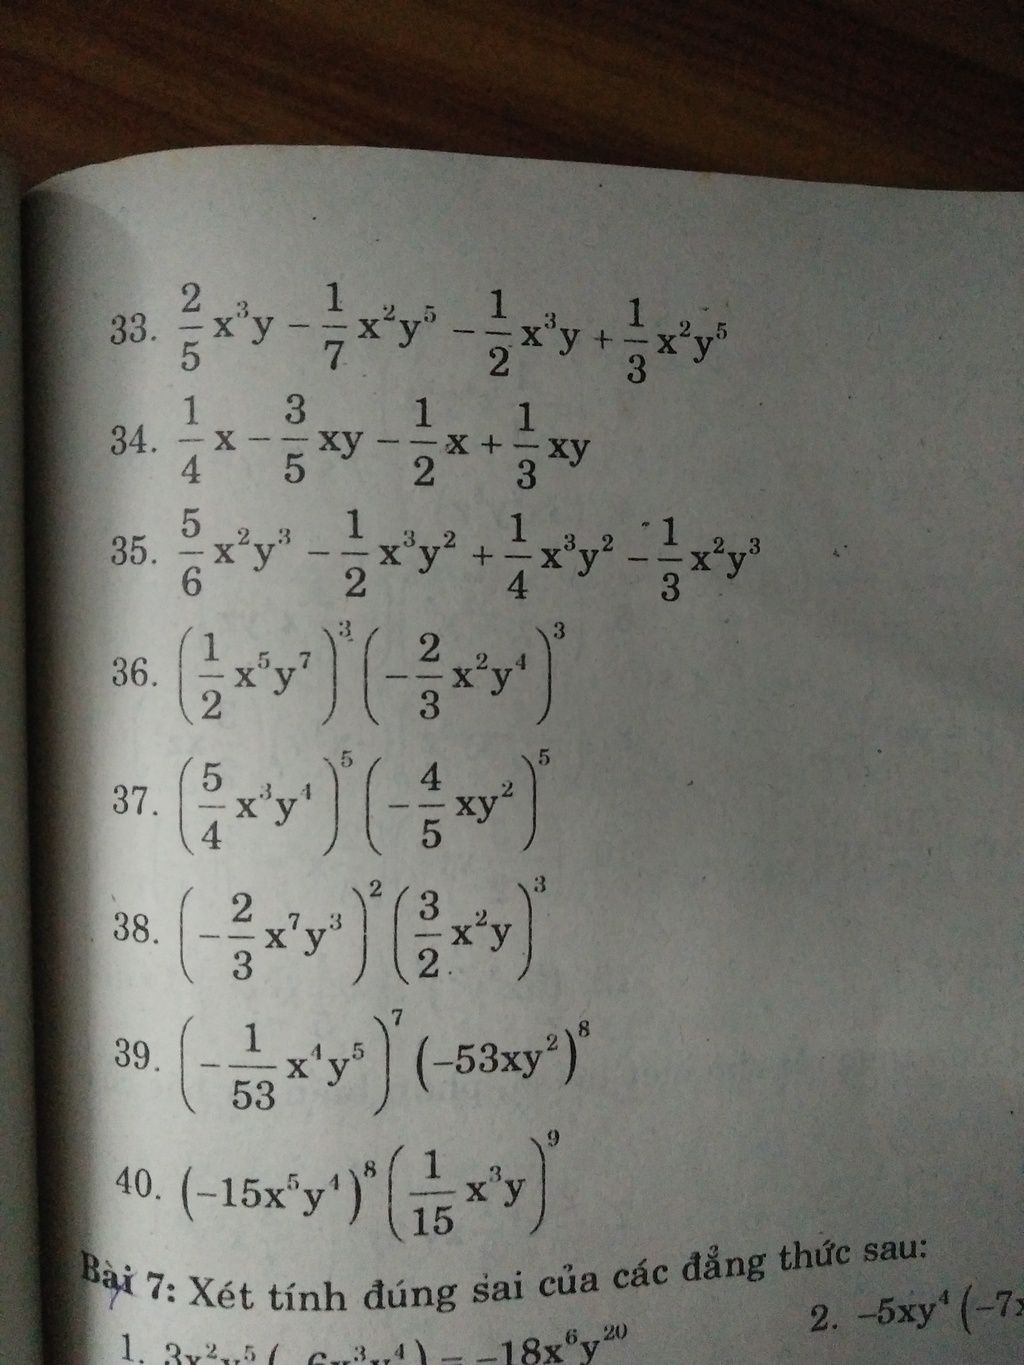 33. 2/5 x³y − 1/7 x²y⁵ − 1/2 x³y + 1/3 x²y⁵
34. 1/4 x − 3/5 xy − 1/2 x + 1/3 xy
35. 5/6 x²y³ − 1/2 x³y² + 1/4 x³y² − 1/3 x²y³
36. (1/2 x⁵y⁷)³ (−2/3 x²y⁴)³
37. (5/4 x³y⁴)⁵ (−4/5 xy²)⁵
38. (−2/3 x⁷y³)² (3/2 x²y)³
39. (−1/53 x⁴y⁵)⁷ (−53xy²)⁸
40. (−15x⁵y⁴)⁸ (1/15 x³y)⁹
Bài 7: Xét tính đúng sai của các đẳng thức sau:
1. 3x²y⁵(−6x³y⁴) = −18x⁶y²⁰ 2. −5xy⁴(−7x